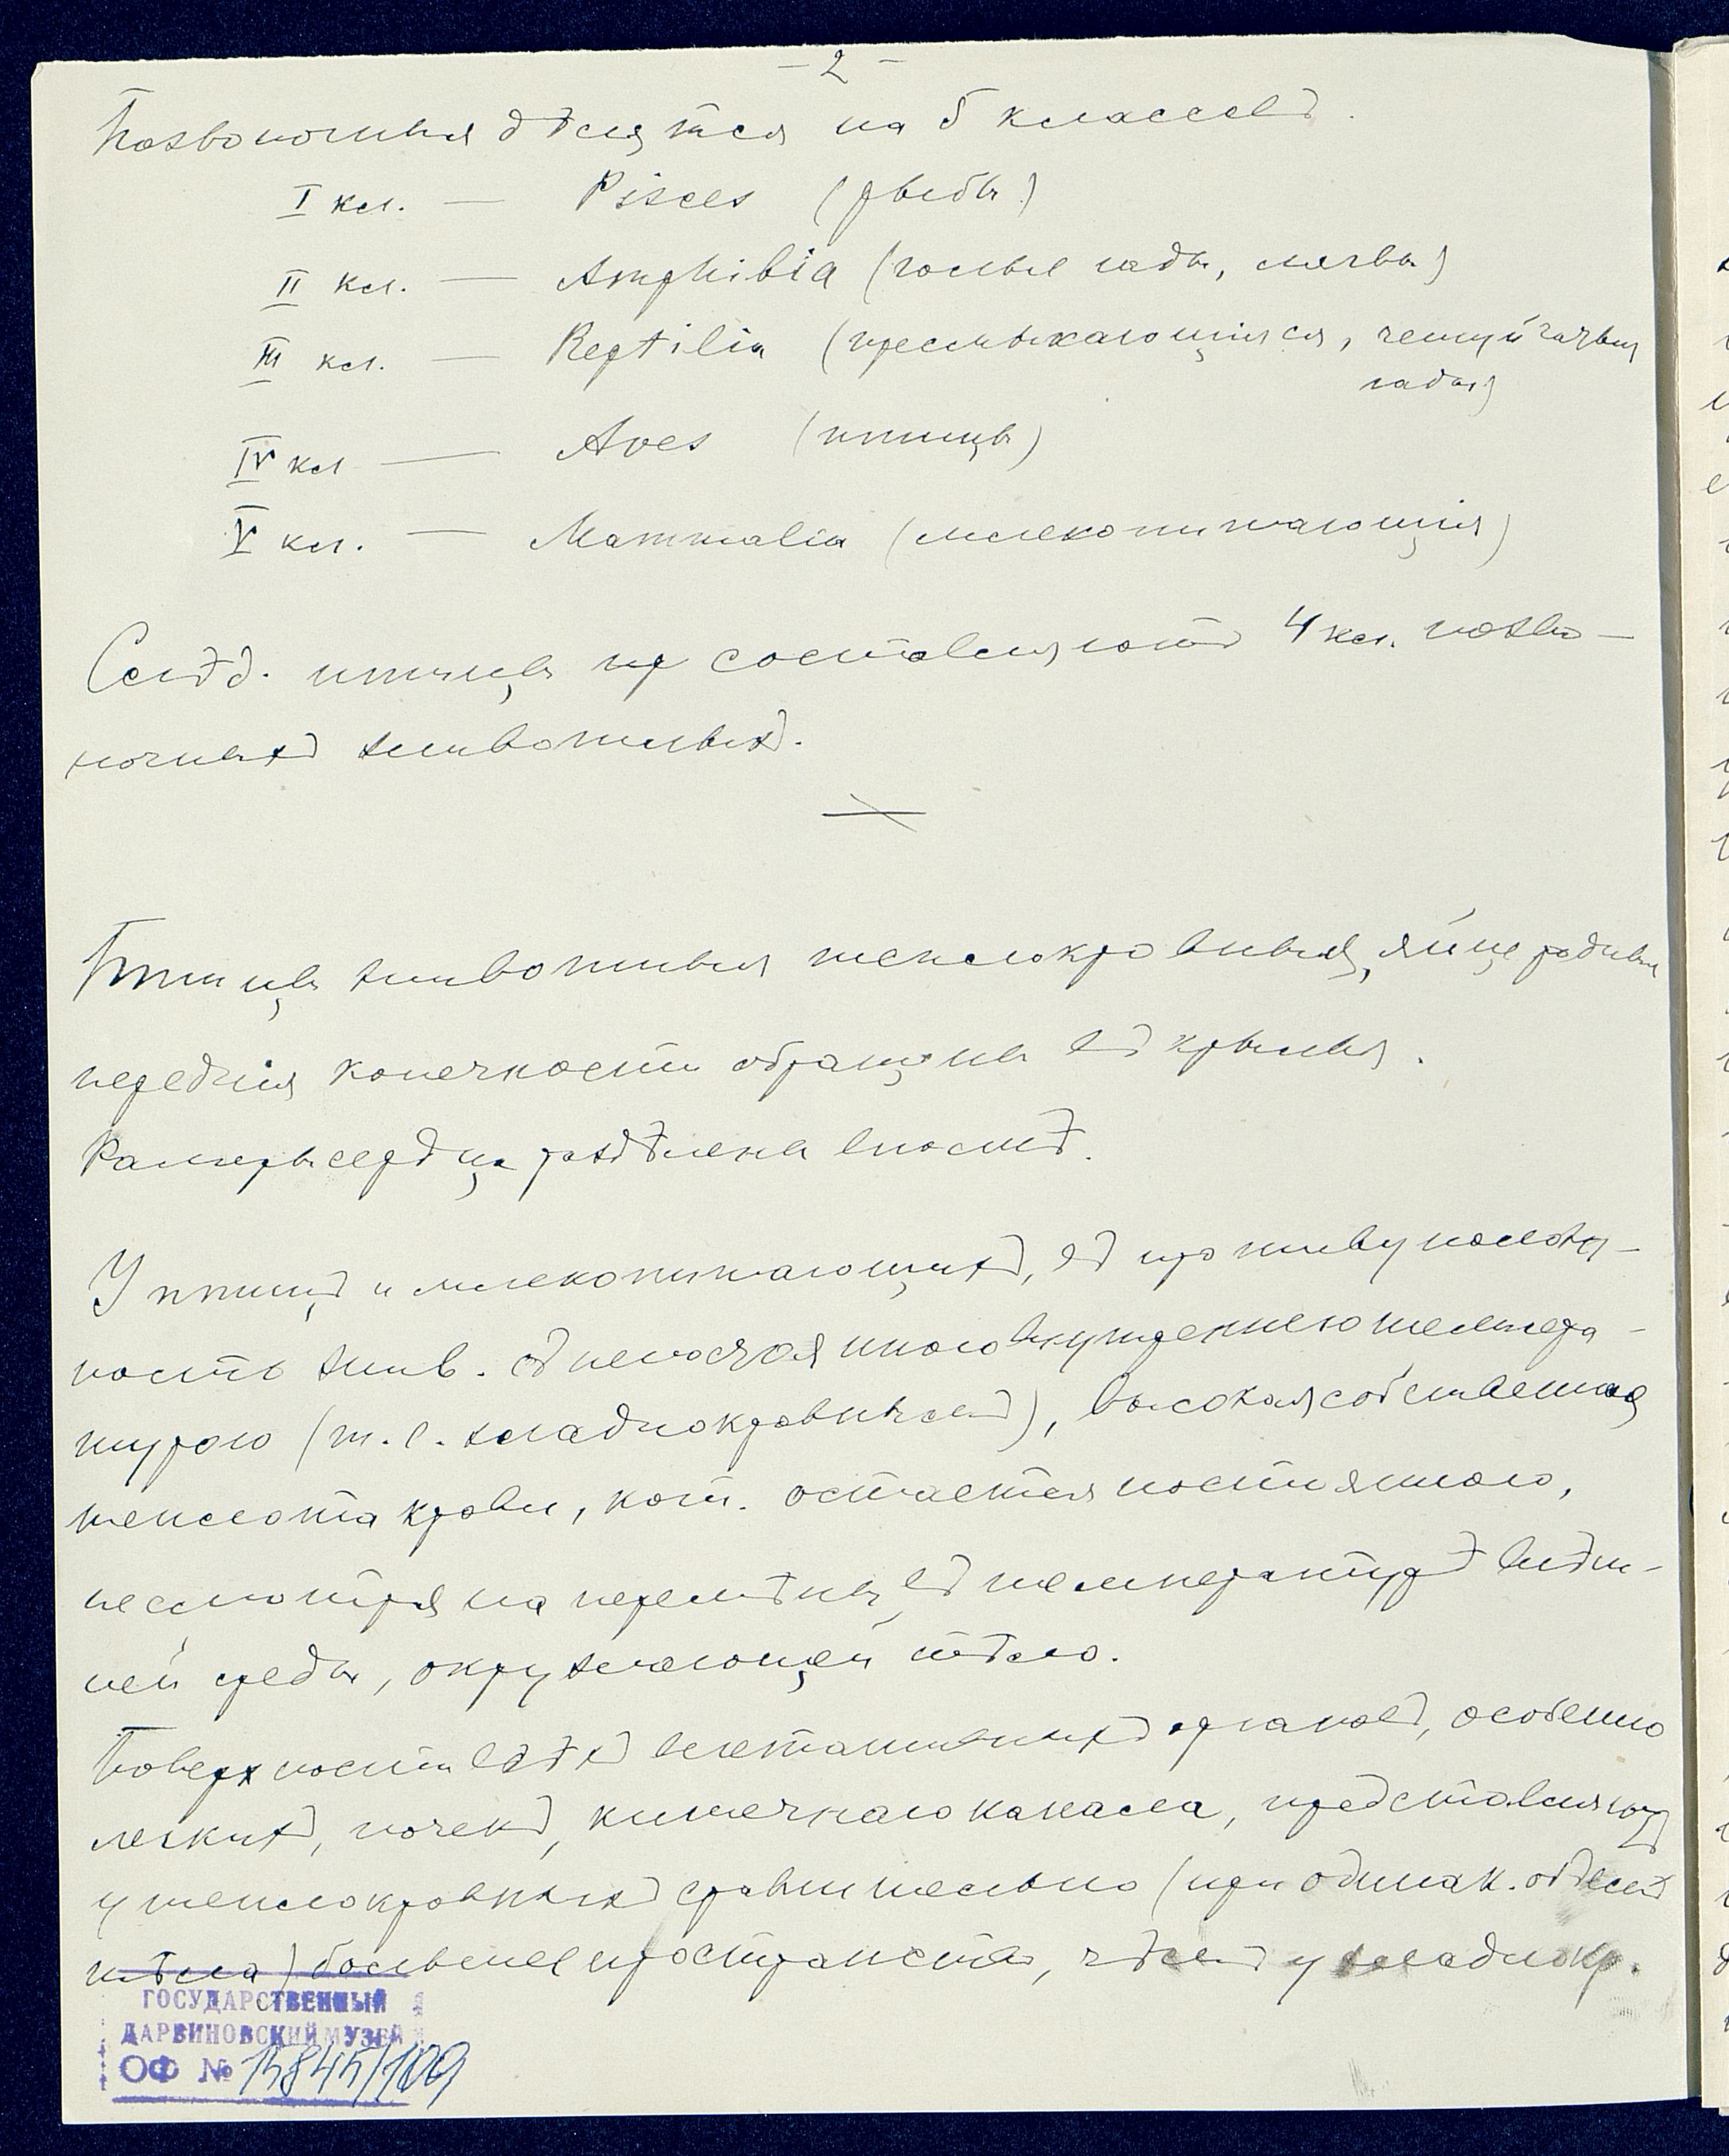 – 2 –
Позвоночныя дѣлятся на 5 классовъ.
I кл. — Pisces (рыбы)
II кл. — Amphibia (голые гады, )
III кл. — Reptilia (пресмыкающіяся, чешуйчатыя
гады)
IV кл — Aves (птицы)
V кл. — Mammalia (млекопитающія)
Слѣд. птицы составляютъ 4 кл. позво-
ночныхъ животныхъ.
Птицы животныя теплокровныя, яйцеродныя
переднія конечности обращены въ крылья.
Камеры сердца раздѣлены вполнѣ.
У птицъ и млекопитающихъ, въ противуположн-
ность жив. съ непостоянною внутреннею темпера-
турою (т.е. хладнокровнымъ), высокая собственная
теплота крови, кот. остается постоянною,
несмотря на перемѣны въ температурѣ внѣш-
ней среды, окружающей тѣло.
Поверхности всѣхъ вегетативныхъ органовъ, особенно
легкихъ, почекъ, кишечнаго канала, представляютъ
у теплокровныхъ сравнительно (при одинак. объемѣ
тѣла) большее пространство, чѣмъ у хладнокр.
ГОСУДАРСТВЕННЫЙ
ДАРВИНОВСКИЙ МУЗЕЙ
ОФ № 13845/109